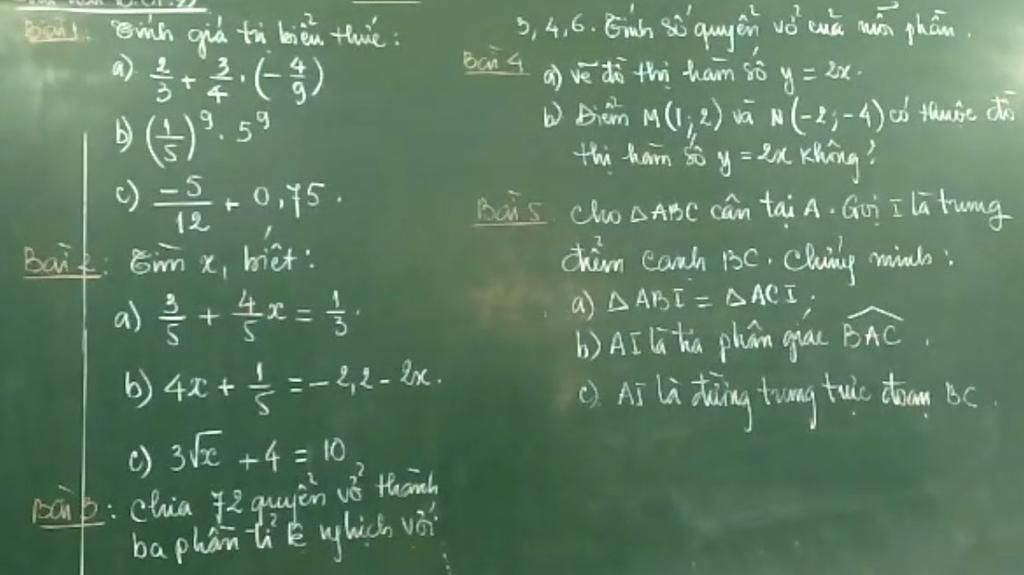 Bài 1: Tính giá trị biểu thức:
a) 2/3 + 3/4 . (-4/9)
b) (1/5)^9 . 5^9
c) -5/12 + 0,75.
Bài 2: Tìm x, biết:
a) 3/5 + 4/5 x = 1/3.
b) 4x + 1/5 = -2,2 - 2x.
c) 3√x + 4 = 10
Bài 3: Chia 72 quyển vở thành
ba phần tỉ lệ nghịch với
3, 4, 6. Tính số quyển vở của mỗi phần.
Bài 4 a) Vẽ đồ thị hàm số y = 2x.
b) Điểm M(1; 2) và N(-2; -4) có thuộc đồ
thị hàm số y = 2x không?
Bài 5 Cho △ABC cân tại A. Gọi I là trung
điểm cạnh BC. Chứng minh:
a) △ABI = △ACI.
b) AI là tia phân giác \widehat{BAC}.
c) AI là đường trung trực đoạn BC.